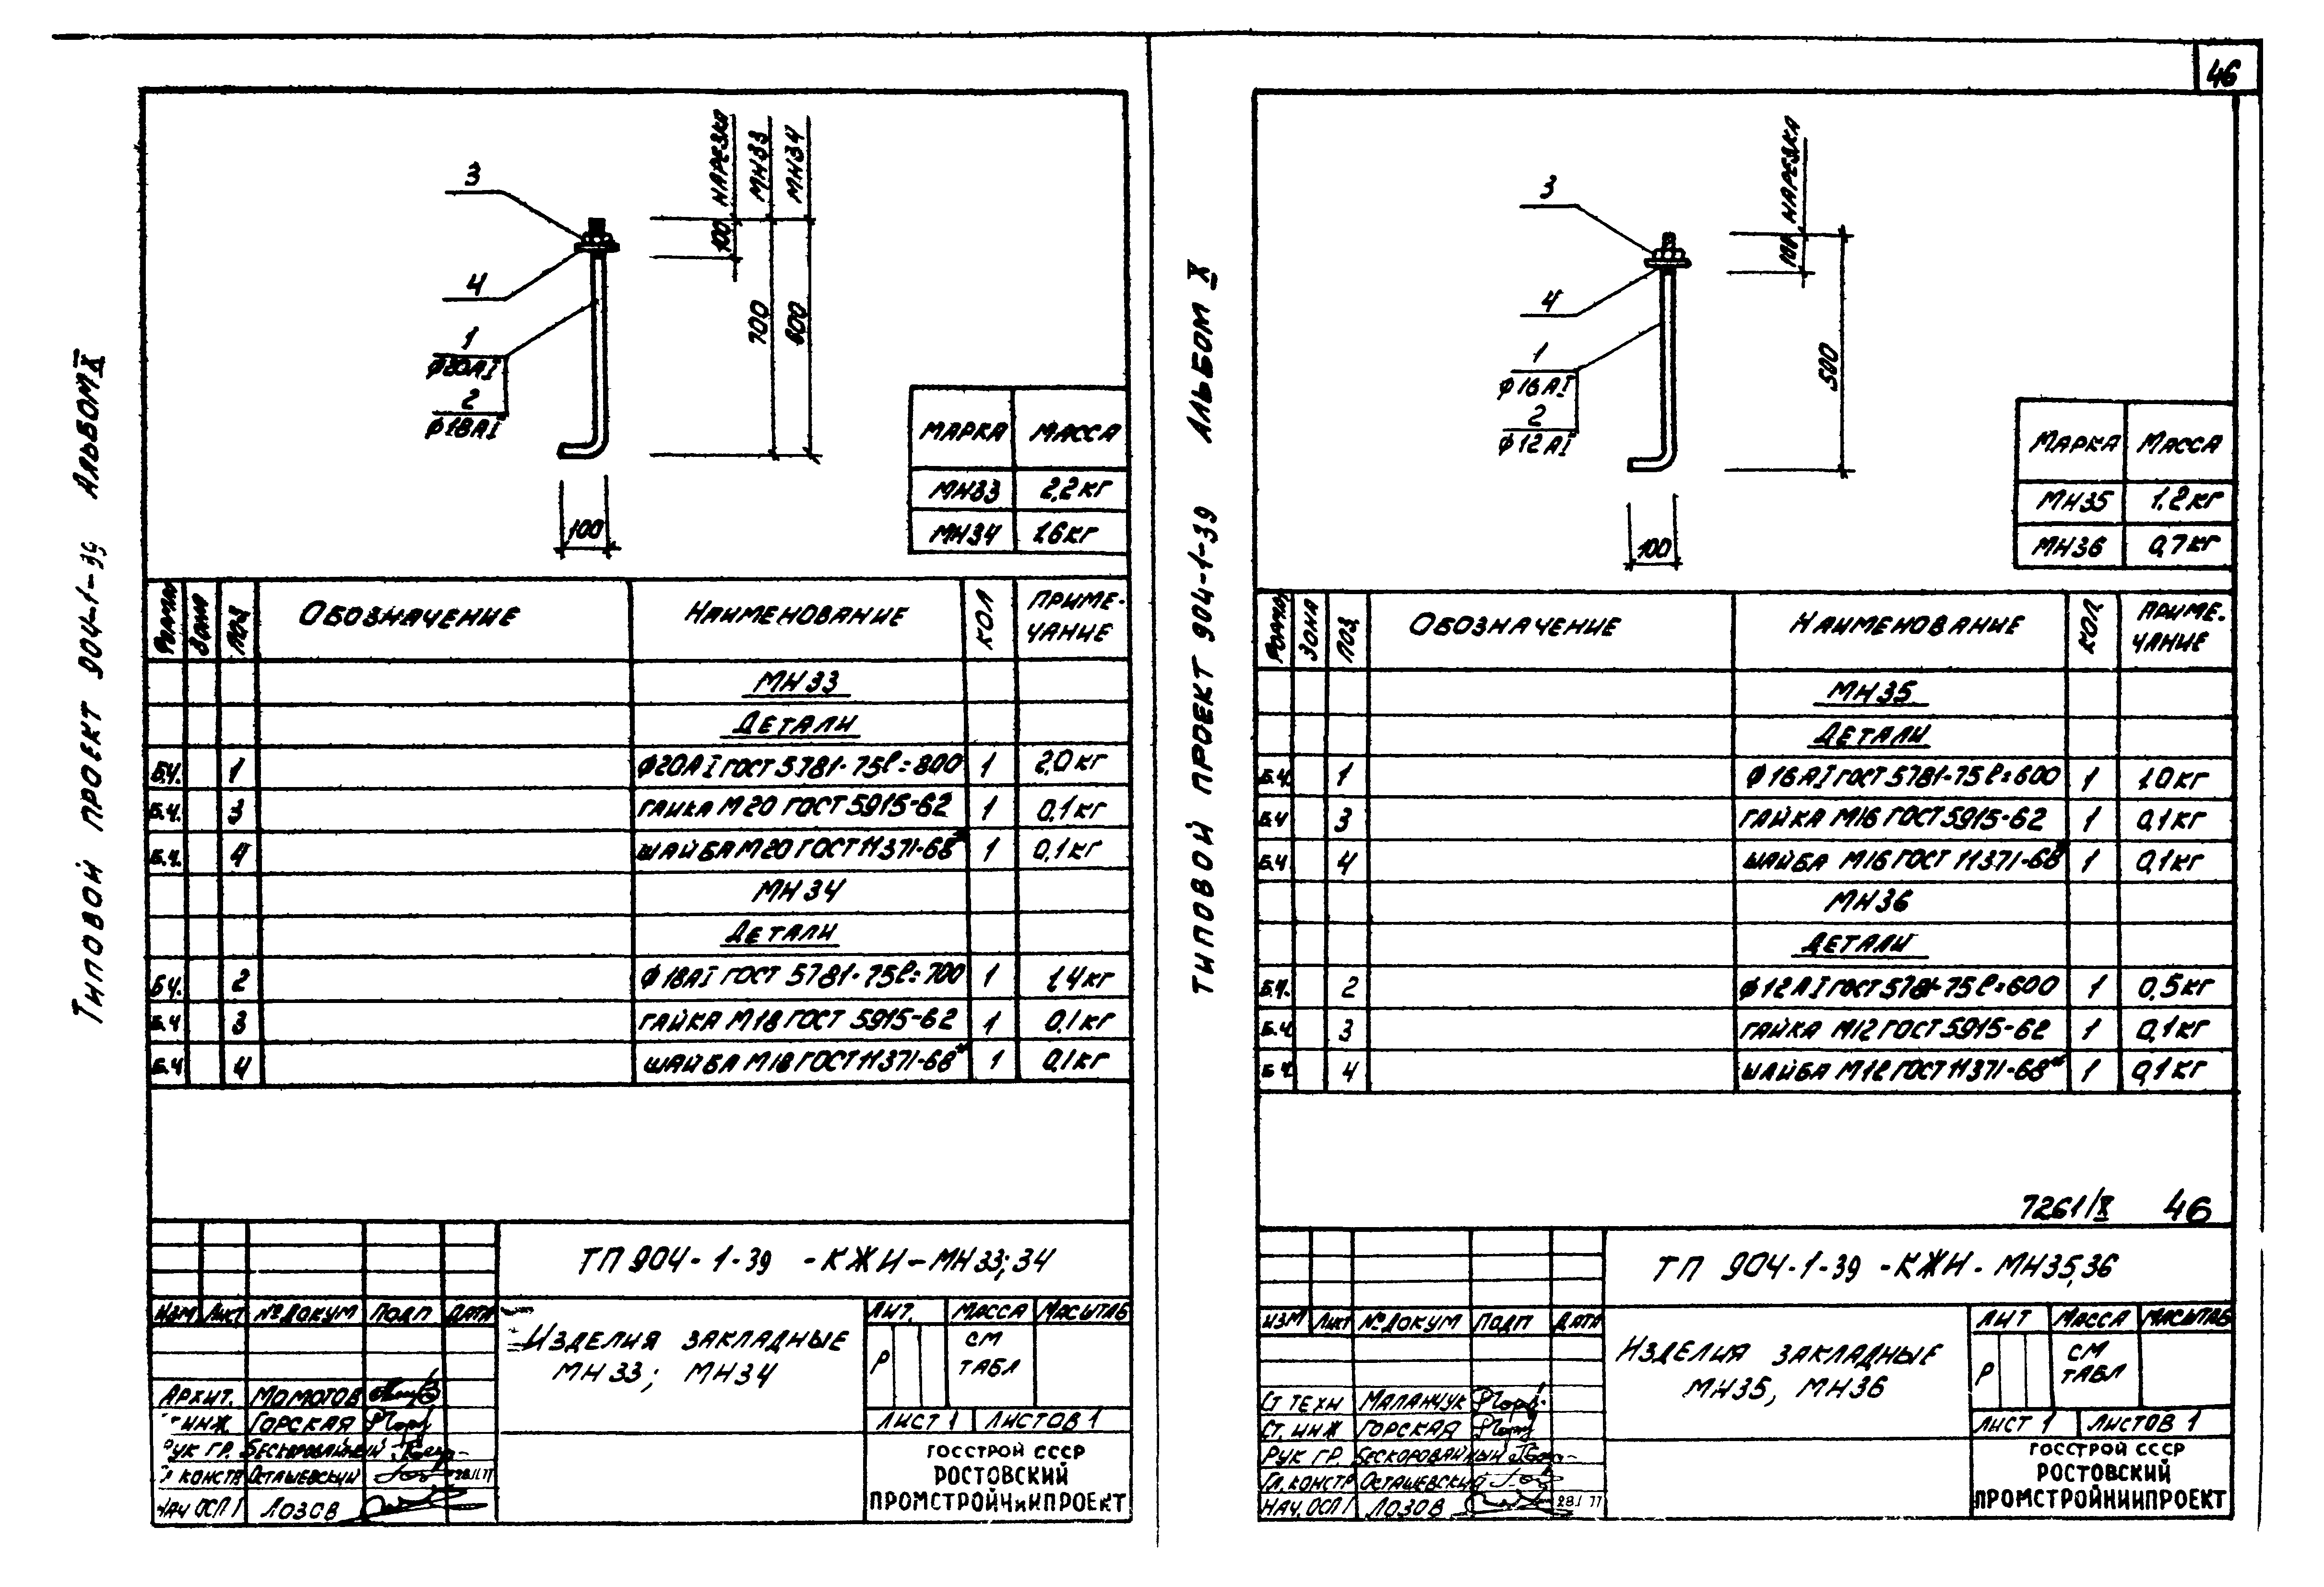 46
Типовой проект 904-1-39 Альбом X
3
4
1
Ф20АI
2
Ф18АI
НАРЕЗКА
МН33
МН34
100
700
600
100
МАРКА МАССА
МН33 2,2кг
МН34 1,6кг
ЗОНА ПОЗ ОБОЗНАЧЕНИЕ НАИМЕНОВАНИЕ КОЛ ПРИМЕ-
ЧАНИЕ
МН33
ДЕТАЛИ
Б.Ч. 1 Ф20АI ГОСТ 5781-75 ℓ=800 1 2,0кг
Б.Ч. 3 ГАЙКА М20 ГОСТ 5915-62 1 0,1кг
Б.Ч. 4 ШАЙБА М20 ГОСТ 11371-68* 1 0,1кг
МН34
ДЕТАЛИ
Б.Ч. 2 Ф18АI ГОСТ 5781-75 ℓ=700 1 1,4кг
Б.Ч 3 ГАЙКА М18 ГОСТ 5915-62 1 0,1кг
Б.Ч 4 ШАЙБА М18 ГОСТ 11371-68* 1 0,1кг
ТП 904-1-39 -КЖИ-МН33;34
ИЗМ ЛИСТ №ДОКУМ ПОДП ДАТА
ИЗДЕЛИЯ ЗАКЛАДНЫЕ
МН33; МН34
ЛИТ. МАССА МАСШТАБ
Р СМ
ТАБЛ
ЛИСТ 1 ЛИСТОВ 1
АРХИТ. МОМОТОВ
ИНЖ ГОРСКАЯ
РУК ГР. БЕСКОРОВАЙНЫЙ
КОНСТР ОСТАШЕВСКИЙ
НАЧ ОСП 1 ЛОЗОВ
ГОССТРОЙ СССР
РОСТОВСКИЙ
ПРОМСТРОЙНИИПРОЕКТ
ТИПОВОЙ ПРОЕКТ 904-1-39 АЛЬБОМ X
3
4
1
Ф16АI
2
Ф12АI
НАРЕЗКА
500
100
МАРКА МАССА
МН35 1,2кг
МН36 0,7кг
ЗОНА ПОЗ. ОБОЗНАЧЕНИЕ НАИМЕНОВАНИЕ КОЛ ПРИМЕ-
ЧАНИЕ
МН35
ДЕТАЛИ
Б.Ч. 1 Ф16АI ГОСТ 5781-75 ℓ=600 1 1,0кг
Б.Ч 3 ГАЙКА М16 ГОСТ 5915-62 1 0,1кг
Б.Ч 4 ШАЙБА М16 ГОСТ 11371-68* 1 0,1кг
МН36
ДЕТАЛИ
Б.Ч. 2 Ф12АI ГОСТ 5781-75 ℓ=600 1 0,5кг
Б.Ч 3 ГАЙКА М12 ГОСТ 5915-62 1 0,1кг
Б.Ч 4 ШАЙБА М12 ГОСТ 11371-68* 1 0,1кг
7261/X 46
ТП 904-1-39 -КЖИ- МН35,36
ИЗМ ЛИСТ №ДОКУМ ПОДП ДАТА
ИЗДЕЛИЯ ЗАКЛАДНЫЕ
МН35, МН36
ЛИТ МАССА МАСШТАБ
Р СМ
ТАБЛ
ЛИСТ 1 ЛИСТОВ 1
СТ ТЕХН МАЛАНЧУК
СТ. ИНЖ ГОРСКАЯ
РУК ГР. БЕСКОРОВАЙНЫЙ
ГЛ. КОНСТР ОСТАШЕВСКИЙ
НАЧ. ОСП 1 ЛОЗОВ 28 I 77
ГОССТРОЙ СССР
РОСТОВСКИЙ
ПРОМСТРОЙНИИПРОЕКТ